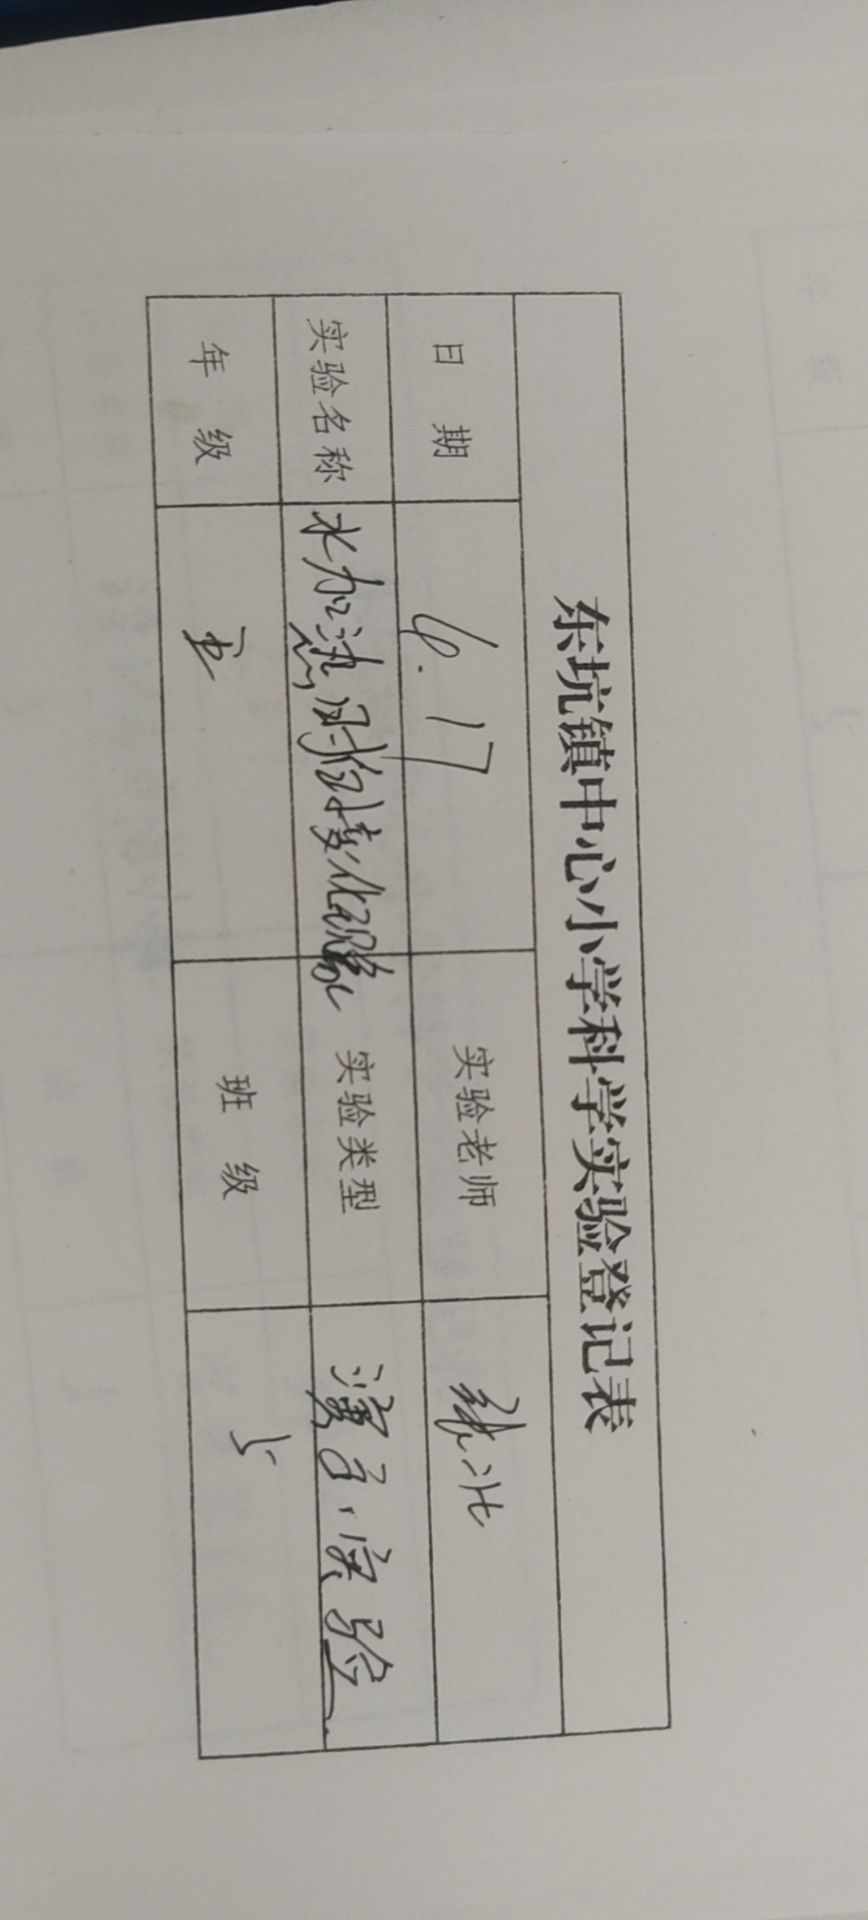 东坑镇中心小学科学实验登记表
日 期 6.17 实验老师
实验名称 水加热时的变化现象 实验类型 演示实验
年 级 五 班 级 5